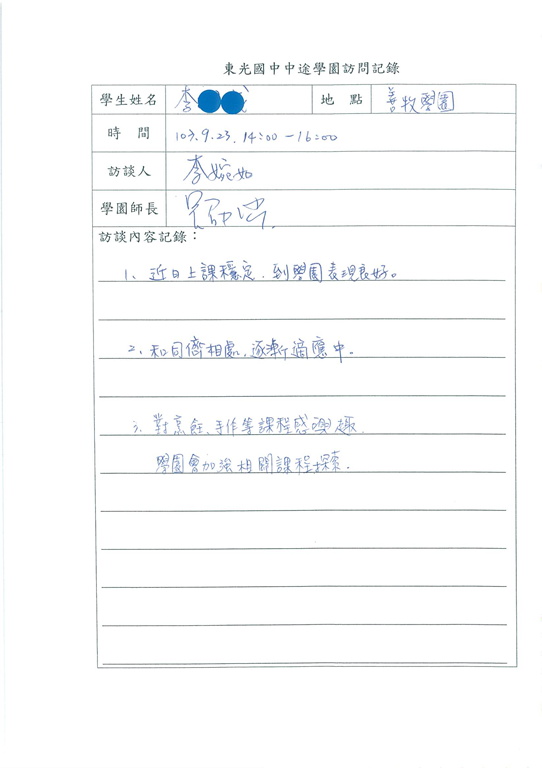 東光國中中途學園訪問記錄
學生姓名 李 地點 善牧學園
時間 103.9.23. 14:00-16:00
訪談人 李婉如
學園師長
訪談內容記錄:
1、近日上課穩定,到學園表現良好。
2、和同儕相處,逐漸適應中。
3、對烹飪、手作等課程感興趣,
學園會加強相關課程探索.